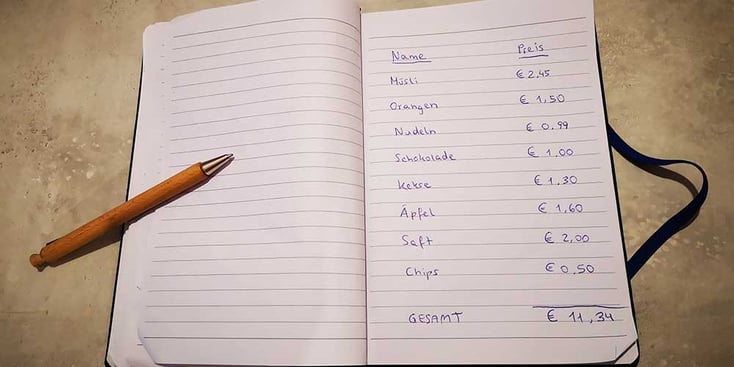 Name Preis
Müsli € 2,45
Orangen € 1,50
Nudeln € 0,99
Schokolade € 1,00
Kekse € 1,30
Äpfel € 1,60
Saft € 2,00
Chips € 0,50
GESAMT € 11,34